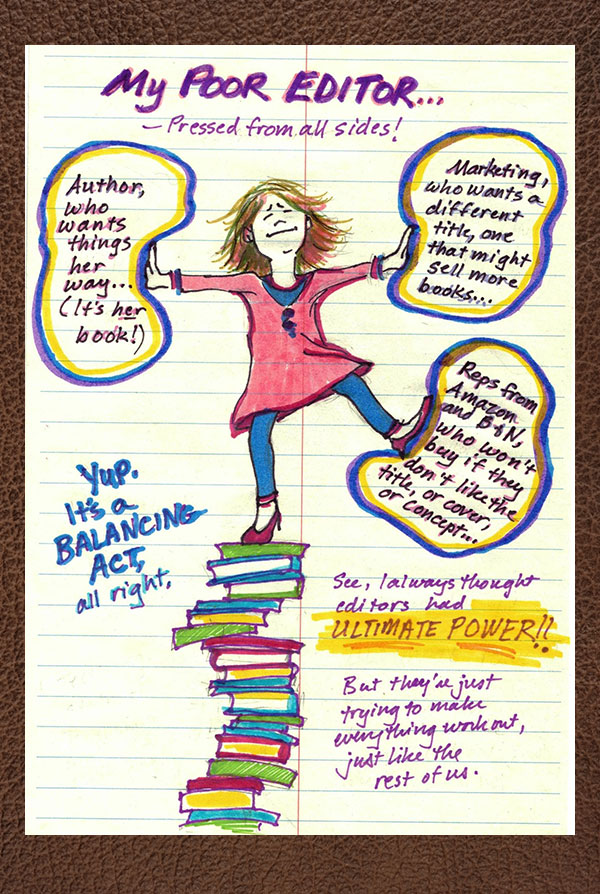 My POOR EDITOR...
— Pressed from all sides!
Author,
who
wants
things
her
way...
(It's her
book!)
Marketing,
who wants a
different
title, one
that might
sell more
books...
Reps from
Amazon
and B&N,
who won't
buy if they
don't like the
title, or cover,
or concept...
Yup.
It's a
BALANCING
ACT,
all right.
See, I always thought
editors had
ULTIMATE POWER!!
But they're just
trying to make
everything work out,
just like the
rest of us.